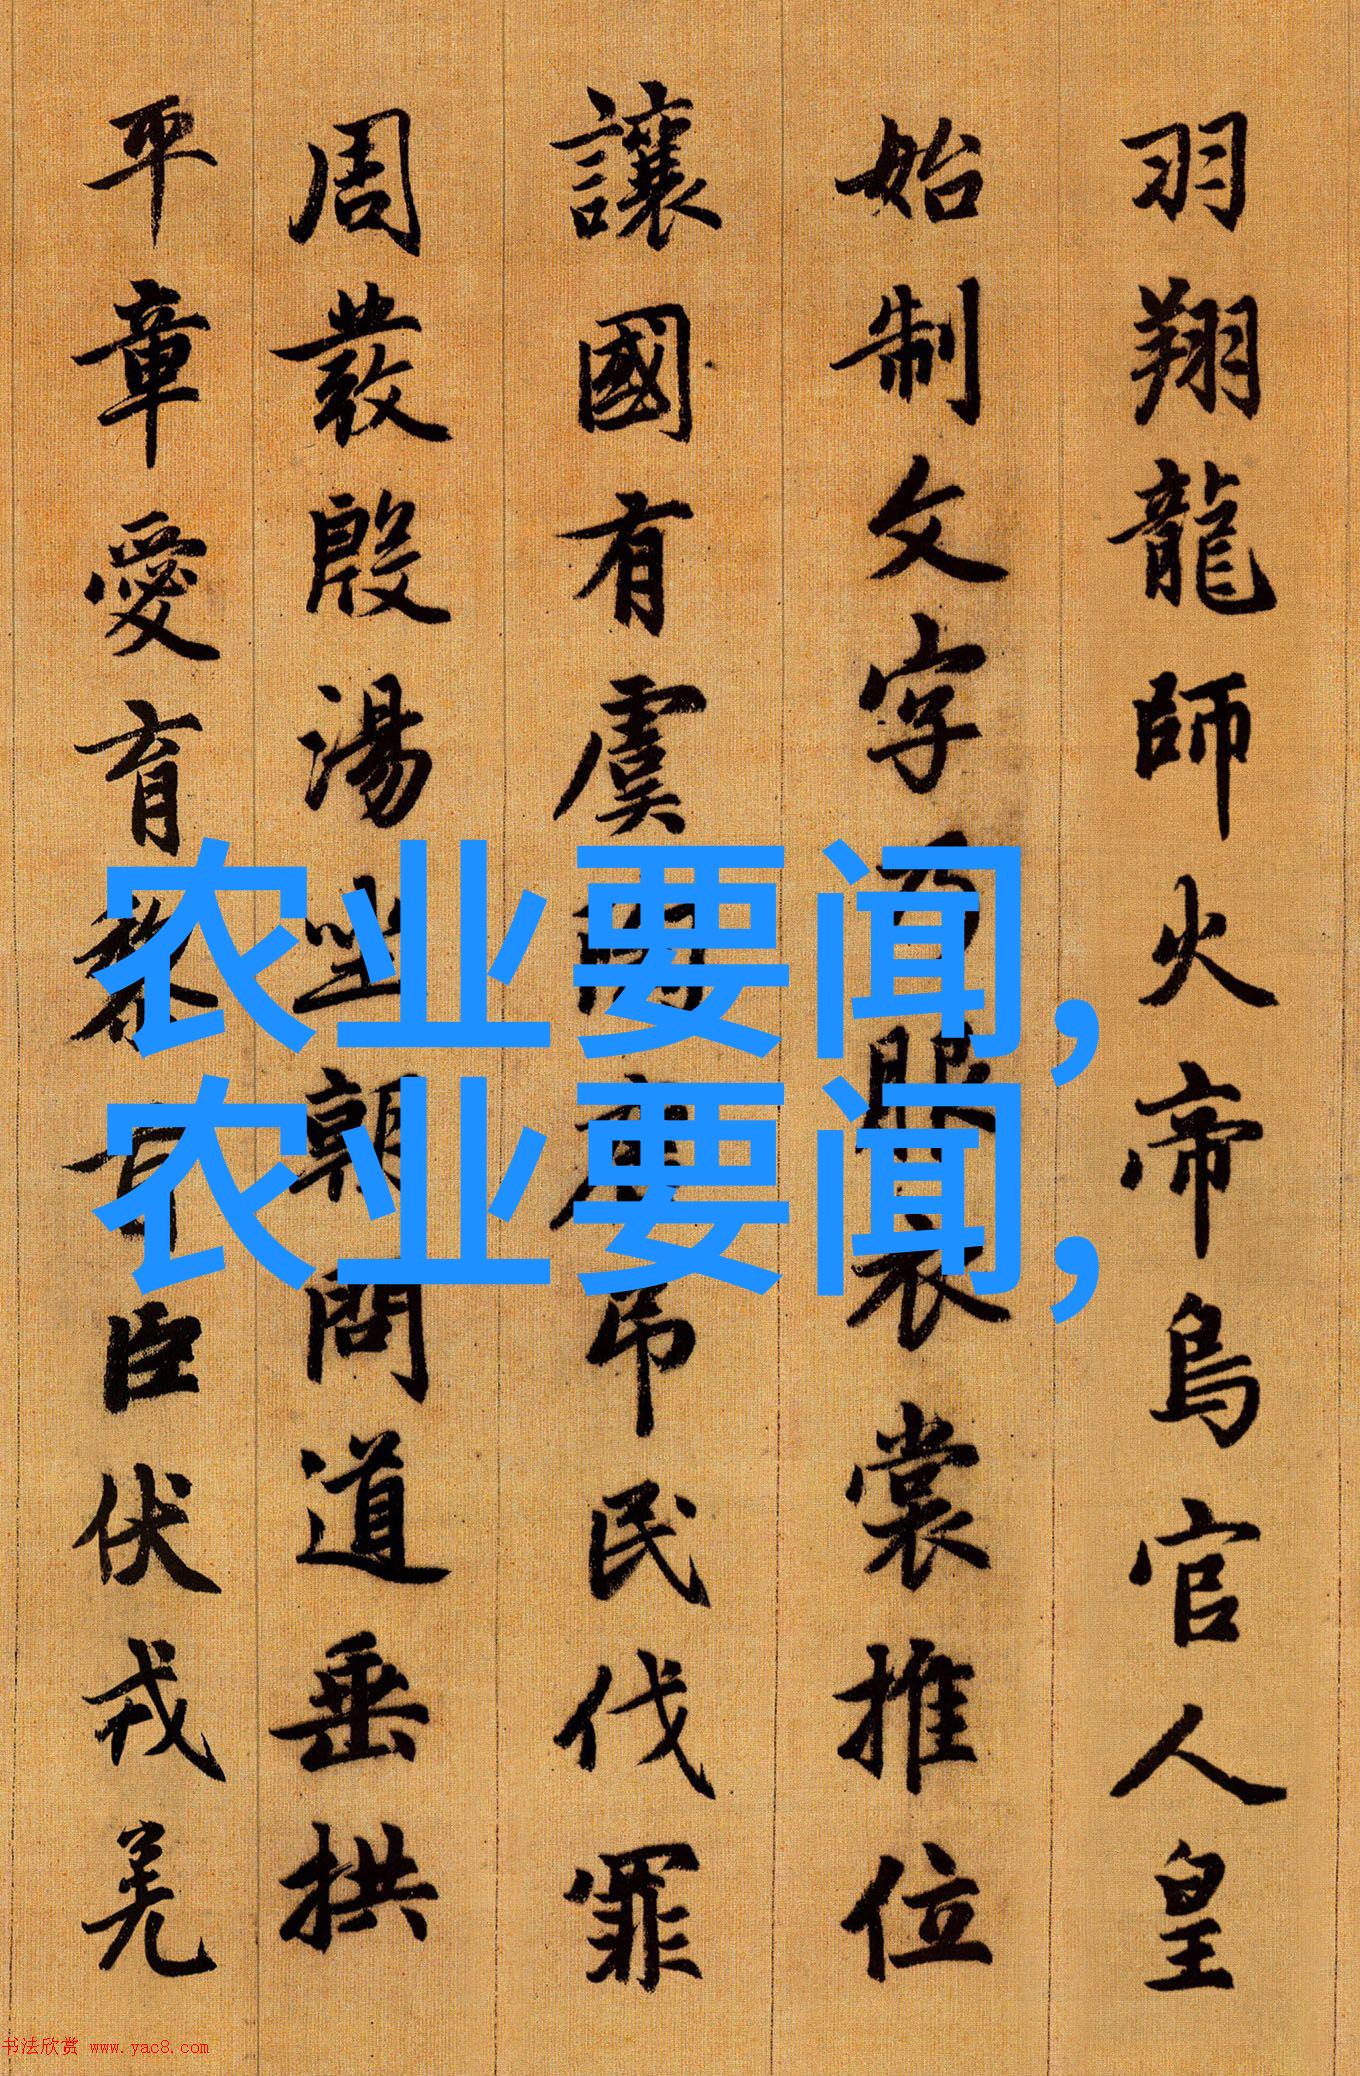 羽翔龍師火帝鳥官人皇
始制文字乃服衣裳推位
讓國有虞陶唐吊民伐罪
周發殷湯坐朝問道垂拱
平章愛育黎首臣伏戎羌
农业要闻,
农业要闻,
书法欣赏 www.yac8.com